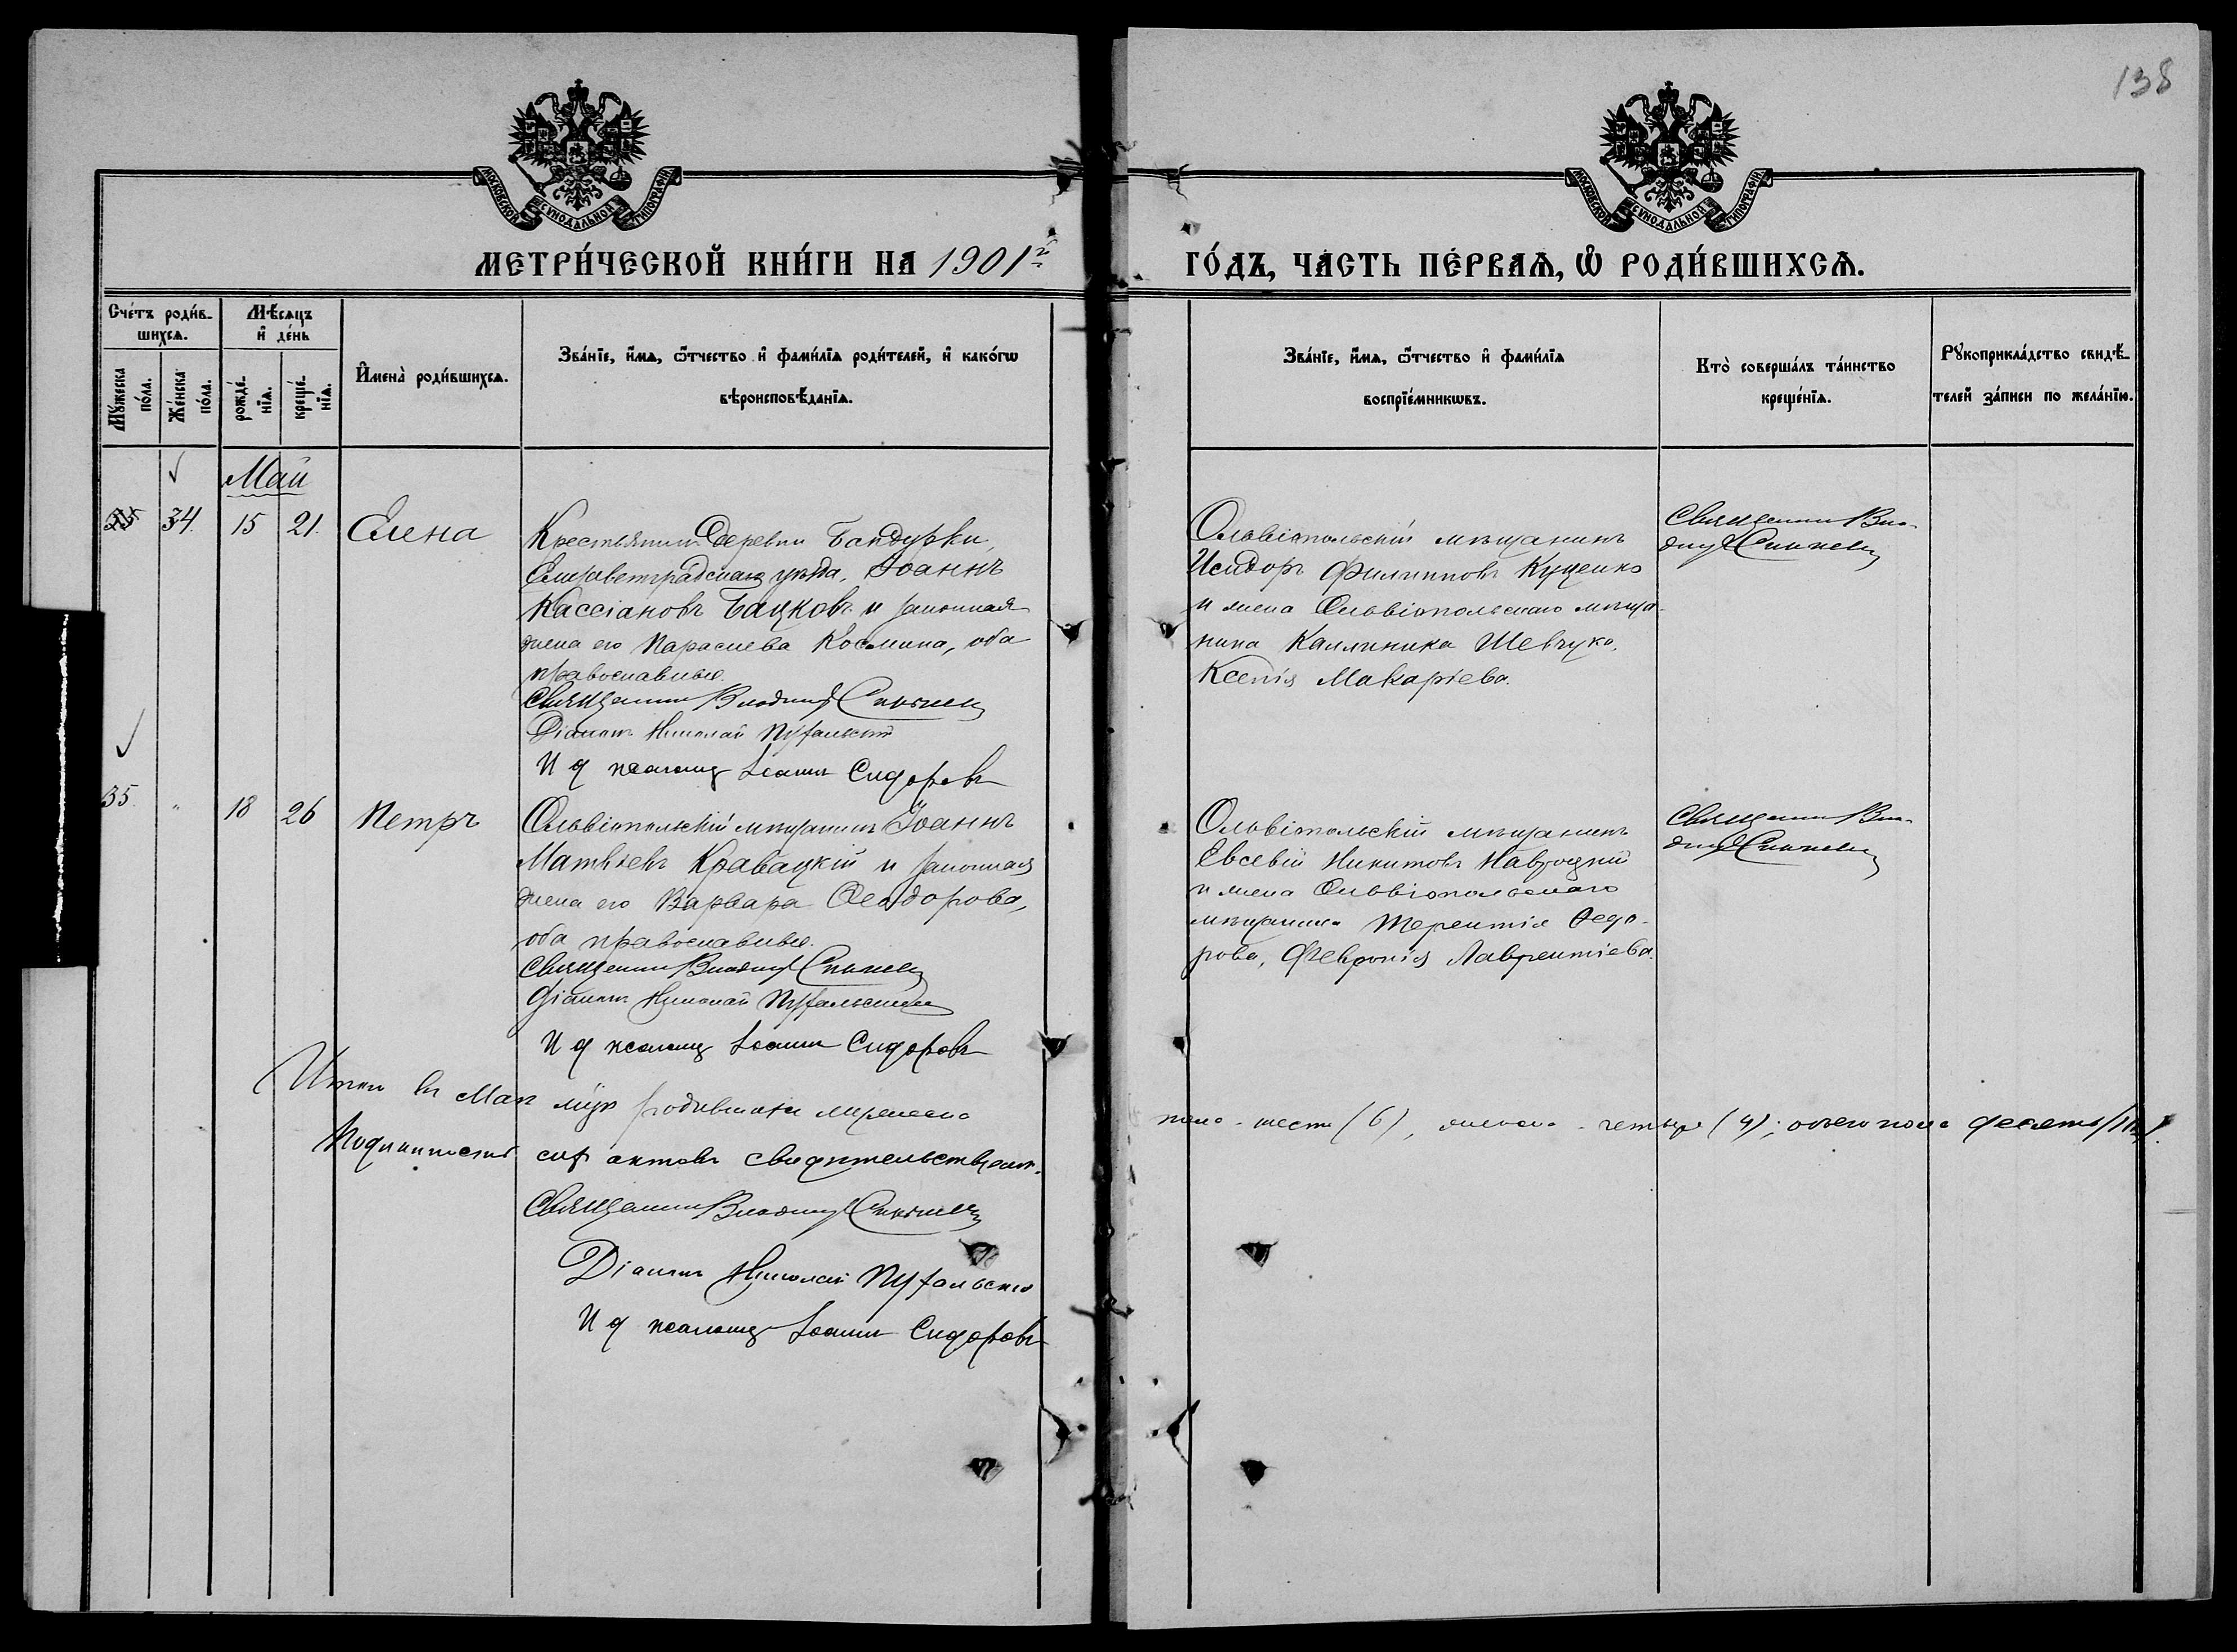 138
МОСКОВСКОЙ СѴНОДАЛЬНОЙ ТИПОГРАФІИ
МОСКОВСКОЙ СѴНОДАЛЬНОЙ ТИПОГРАФІИ
МЕТРИ́ЧЕСКОЙ КНИ́ГИ НА 1901й
ГО́ДЪ, ЧА́СТЬ ПЕ́РВАѦ, Ѡ҆ РОДИ́ВШИХСѦ.
Сче́тъ роди́в-
шихсѧ.
Мꙋ́жеска по́ла.
Же́нска по́ла.
Мѣ́сѧцъ
и҆ де́нь
рожде́-
нїѧ.
креще́-
нїѧ.
И҆мена̀ роди́вшихсѧ.
Зва́нїе, и҆́мѧ, ѻ҆́тчество и҆ фами́лїѧ роди́телей, и҆ како́гѡ
вѣроисповѣ́данїѧ.
Зва́нїе, и҆́мѧ, ѻ҆́тчество и҆ фами́лїѧ
воспрїе́мникѡвъ.
Кто̀ соверша́лъ та́инство
креще́нїѧ.
Рꙋкоприкла́дство свидѣ́-
телей за́писи по жела́нїю.
Май
34. 15 21. Елена
Крестьянин деревни Бандурки,
Елисаветградскаго уѣзда, Іоаннъ
Кассіановъ Бацковъ и законная
жена его Параскева Космина, оба
православные.
Священникъ Владимір
Діаконъ Николай
И д псаломщ Іоаннъ Сидоровъ
Ольвіопольскій мѣщанинъ
Исидоръ Филипповъ Куценко
и жена Ольвіопольскаго мѣща-
нина Каллиника Шевчука,
Ксенія Макаріева.
Священникъ Вла-
димір
35. " 18 26 Петръ
Ольвіопольскій мѣщанинъ Іоаннъ
Матвѣевъ Кравацкій и законная
жена его Варвара Ѳеодорова,
оба православные.
Священникъ Владимір
Діаконъ Николай
И д псаломщ Іоаннъ Сидоровъ
Ольвіопольскій мѣщанинъ
Евсевій Никитовъ Навроцкій
и жена Ольвіопольскаго
мѣщанина Терентія Ѳедо-
рова, Февронія Лаврентіева.
Священникъ Вла-
димір
Итого въ Маѣ м-цѣ родившихся мужеска
пола - шесть (6), женска - четыре (4); обоего пола десять (10).
Подлинность сихъ актовъ свидѣтельствуютъ:
Священникъ Владимір
Діаконъ Николай
И д псаломщ Іоаннъ Сидоровъ